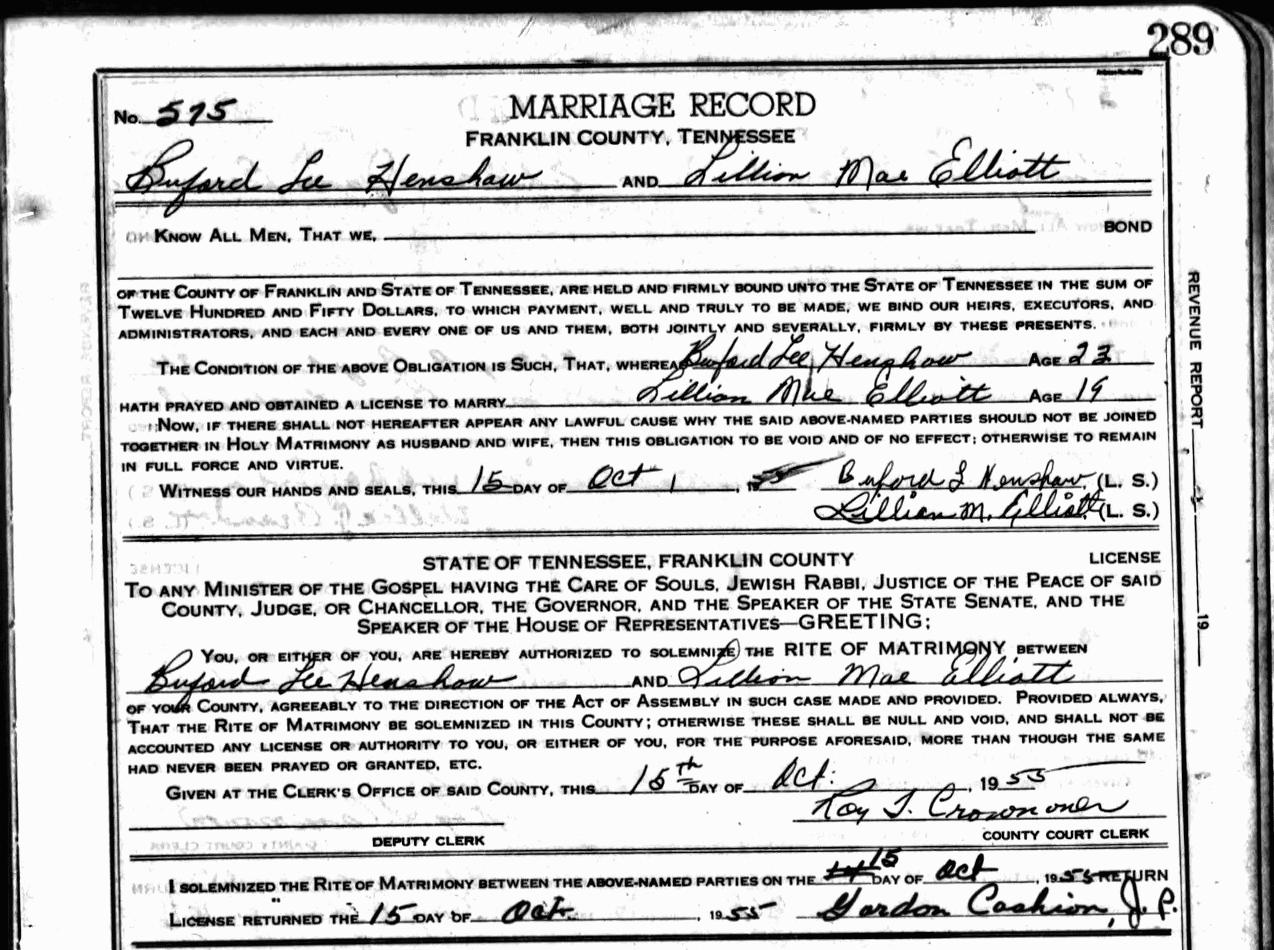 289
No. 575
MARRIAGE RECORD
FRANKLIN COUNTY, TENNESSEE
Buford Lee Henshaw AND Lillion Mae Elliott
KNOW ALL MEN, THAT WE, BOND
OF THE COUNTY OF FRANKLIN AND STATE OF TENNESSEE, ARE HELD AND FIRMLY BOUND UNTO THE STATE OF TENNESSEE IN THE SUM OF
TWELVE HUNDRED AND FIFTY DOLLARS, TO WHICH PAYMENT, WELL AND TRULY TO BE MADE, WE BIND OUR HEIRS, EXECUTORS, AND
ADMINISTRATORS, AND EACH AND EVERY ONE OF US AND THEM, BOTH JOINTLY AND SEVERALLY, FIRMLY BY THESE PRESENTS.
THE CONDITION OF THE ABOVE OBLIGATION IS SUCH, THAT, WHEREAS Buford Lee Henshaw AGE 23
HATH PRAYED AND OBTAINED A LICENSE TO MARRY Lillian Mae Elliott AGE 19
NOW, IF THERE SHALL NOT HEREAFTER APPEAR ANY LAWFUL CAUSE WHY THE SAID ABOVE-NAMED PARTIES SHOULD NOT BE JOINED
TOGETHER IN HOLY MATRIMONY AS HUSBAND AND WIFE, THEN THIS OBLIGATION TO BE VOID AND OF NO EFFECT; OTHERWISE TO REMAIN
IN FULL FORCE AND VIRTUE.
WITNESS OUR HANDS AND SEALS, THIS 15 DAY OF Oct, 1955 Buford L Henshaw (L. S.)
Lillian M. Elliott (L. S.)
STATE OF TENNESSEE, FRANKLIN COUNTY LICENSE
TO ANY MINISTER OF THE GOSPEL HAVING THE CARE OF SOULS, JEWISH RABBI, JUSTICE OF THE PEACE OF SAID
COUNTY, JUDGE, OR CHANCELLOR, THE GOVERNOR, AND THE SPEAKER OF THE STATE SENATE, AND THE
SPEAKER OF THE HOUSE OF REPRESENTATIVES—GREETING:
YOU, OR EITHER OF YOU, ARE HEREBY AUTHORIZED TO SOLEMNIZE THE RITE OF MATRIMONY BETWEEN
Buford Lee Henshaw AND Lillion Mae Elliott
OF YOUR COUNTY, AGREEABLY TO THE DIRECTION OF THE ACT OF ASSEMBLY IN SUCH CASE MADE AND PROVIDED. PROVIDED ALWAYS,
THAT THE RITE OF MATRIMONY BE SOLEMNIZED IN THIS COUNTY; OTHERWISE THESE SHALL BE NULL AND VOID, AND SHALL NOT BE
ACCOUNTED ANY LICENSE OR AUTHORITY TO YOU, OR EITHER OF YOU, FOR THE PURPOSE AFORESAID, MORE THAN THOUGH THE SAME
HAD NEVER BEEN PRAYED OR GRANTED, ETC.
GIVEN AT THE CLERK'S OFFICE OF SAID COUNTY, THIS 15th DAY OF Oct. 1955
Roy T.
DEPUTY CLERK COUNTY COURT CLERK
I SOLEMNIZED THE RITE OF MATRIMONY BETWEEN THE ABOVE-NAMED PARTIES ON THE 15 DAY OF Oct, 1955 RETURN
LICENSE RETURNED THE 15 DAY OF Oct. 1955 Gordon Cashion, J. P.
REVENUE REPORT 19